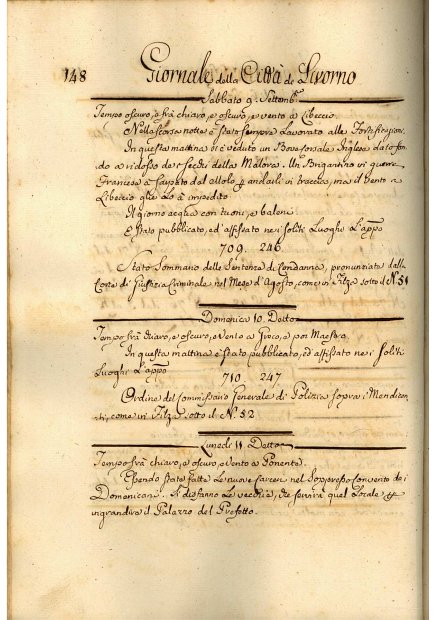 148 Giornale della Città di Livorno
Sabbato 9. Settemb.
Tempo oscuro, e frà chiaro, e oscuro, e vento a Libeccio
Nella scorsa notte è stato sempre Lavorato alle Fortificazioni
In questa mattina si è veduto un Bove Corsale Inglese dato fon
do a ridosso de secchi della Melora. Un Brigantino di guerra
Francese è sarpato dal Molo p andarli in traccia, ma il vento a
Libeccio glie lo à impedito
Il giorno acqua con tuoni, e baleni
E stato pubblicato, ed affissato nei soliti Luoghi L'app.o
709. 246
Stato Sommario delle Sentenze di Condanna, pronunziate dalla
Corte di Giustizia Criminale nel Mese d'Agosto, come in Filza sotto il N. 51
Domenica 10. Detto
Tempo frà chiaro, e oscuro, e vento a Greco, e poi Maestro
In questa mattina è stato pubblicato, ed affissato nei soliti
Luoghi L'app.o
710. 247
Ordine del Commissario Generale di Polizia sopra i Mendican
ti, come in Filza sotto il N. 52
Lunedì 11 Detto
Tempo frà chiaro, e oscuro e vento a Ponente.
Essendo state fatte le nuove Carceri nel soppresso Convento dei
Domenicani. Si disfanno le vecchie, che servirà quel Locale p
ingrandire il Palazzo del Prefetto.